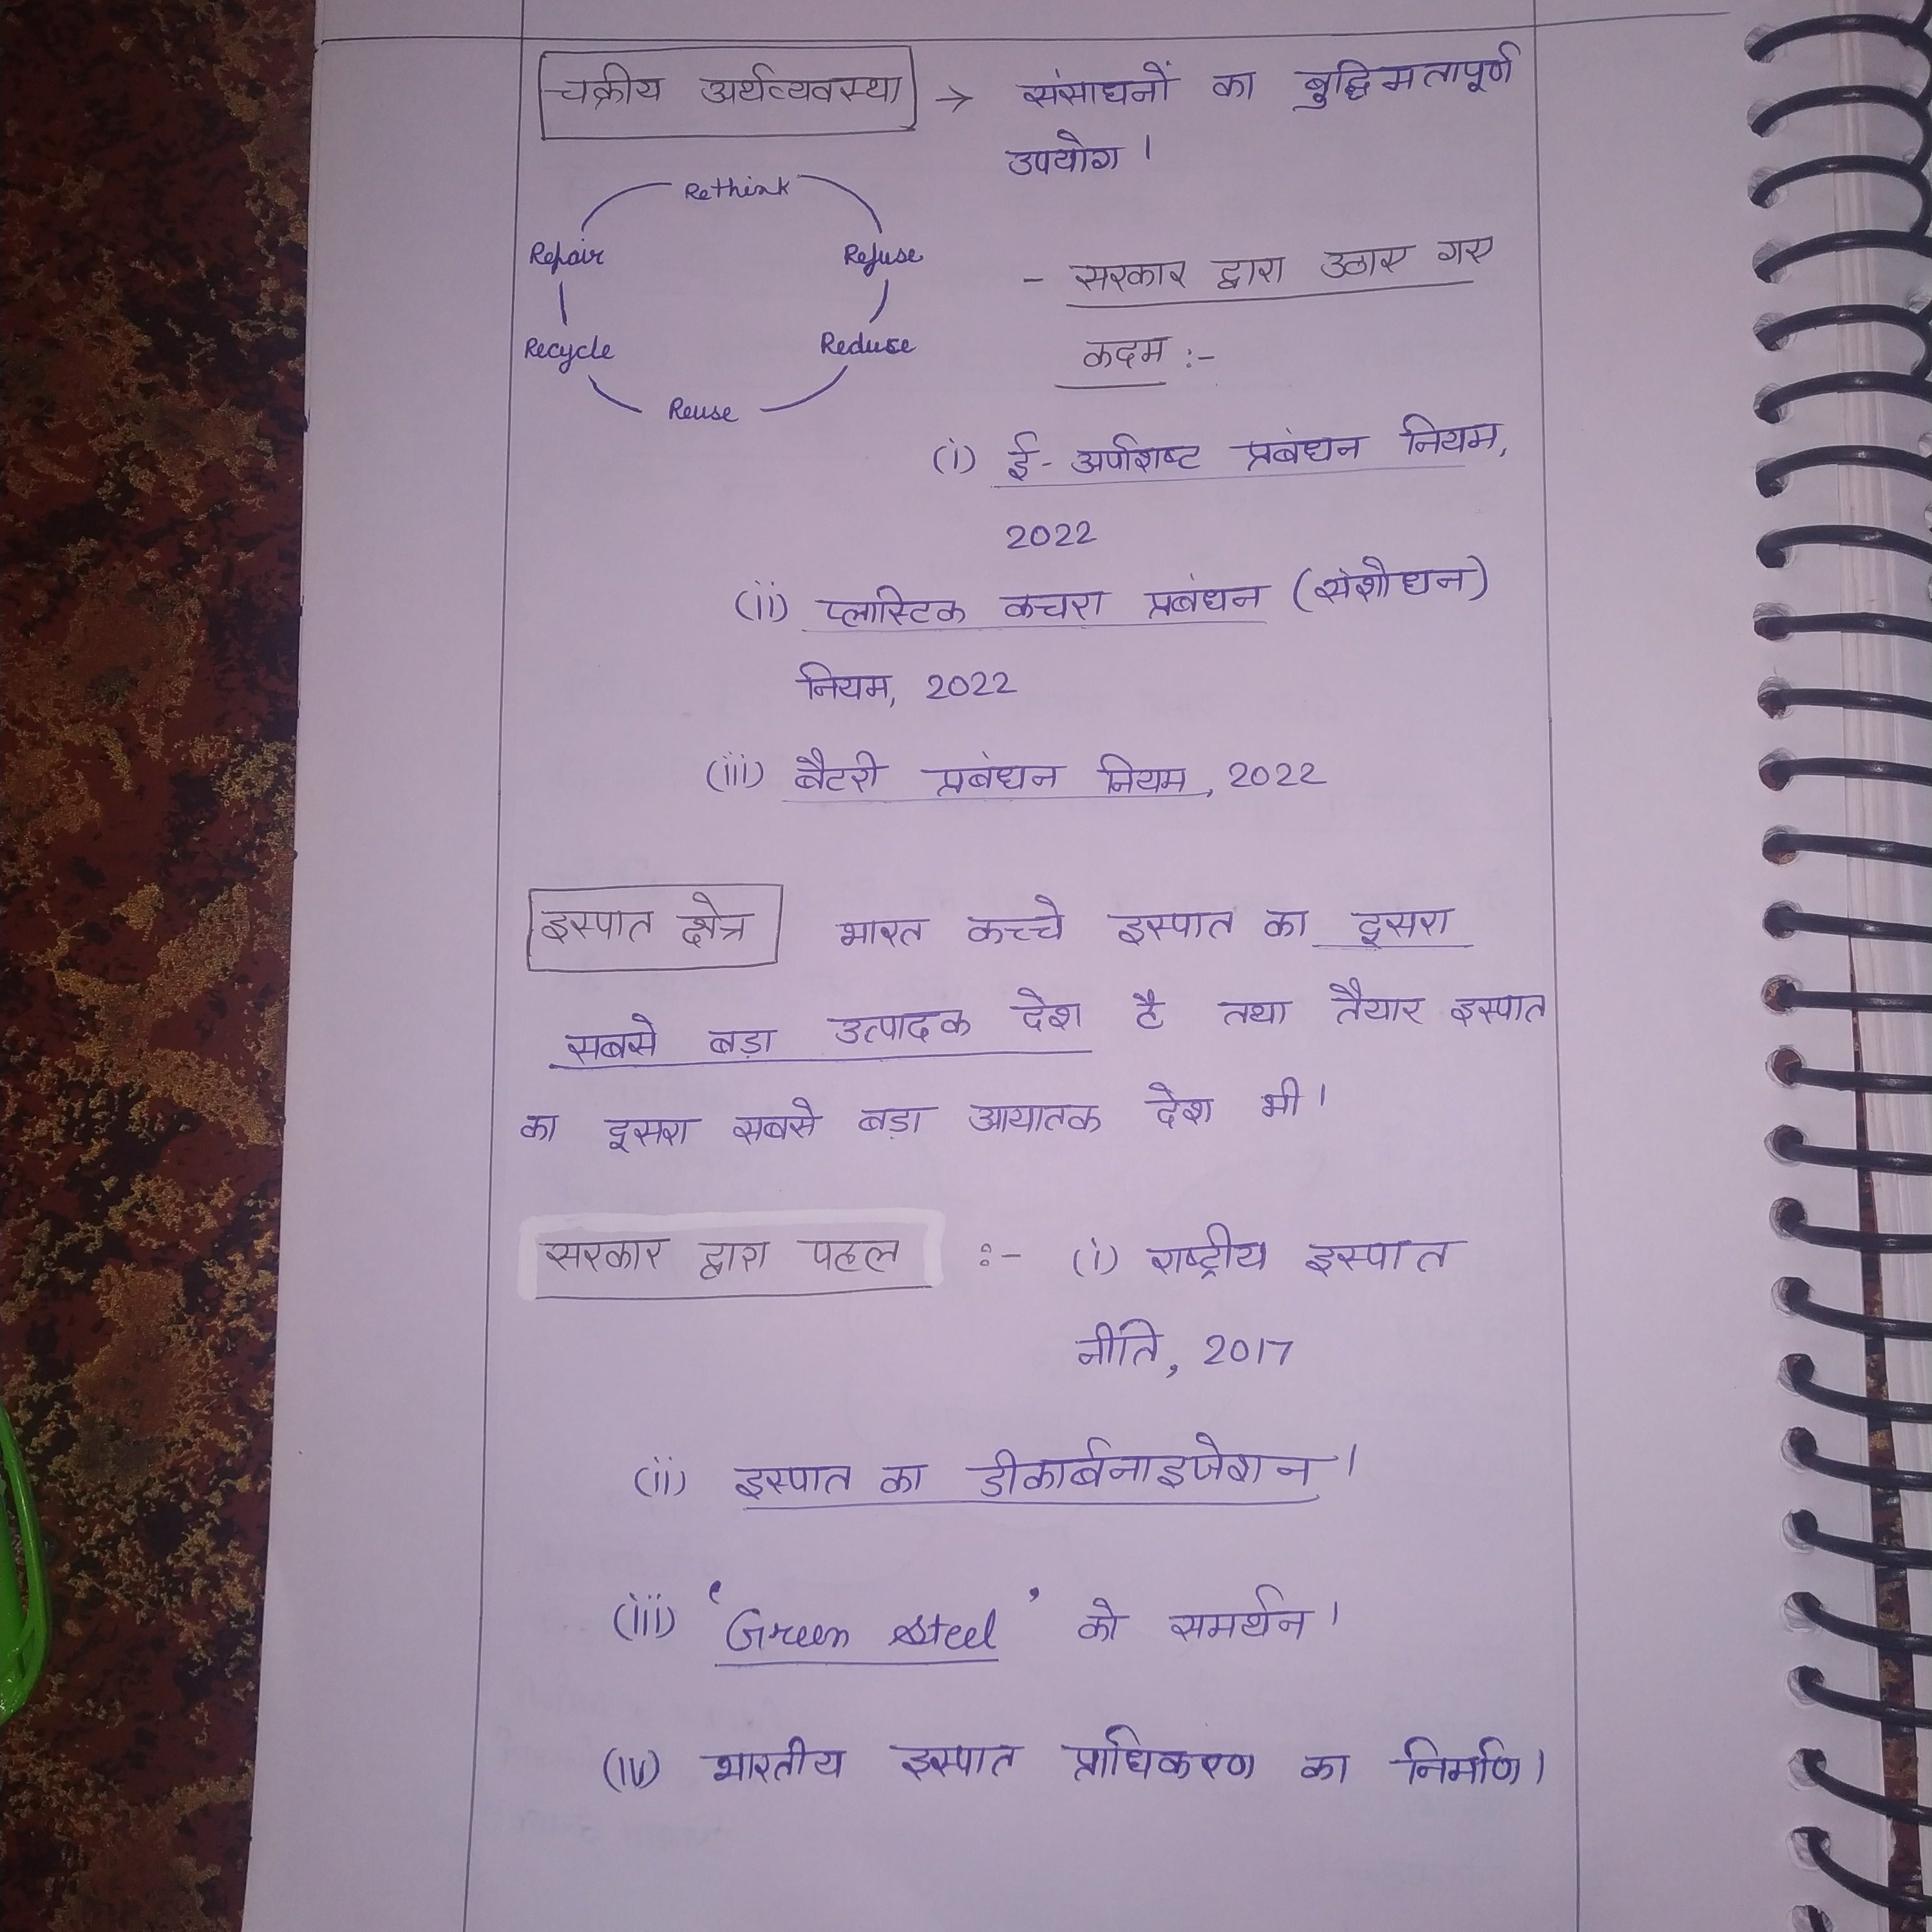 चक्रीय अर्थव्यवस्था → संसाधनों का बुद्धिमतापूर्ण
उपयोग ।
Rethink
Repair Refuse
Recycle Reduse
Reuse
- सरकार द्वारा उठाए गए
कदम :-
(i) ई- अपशिष्ट प्रबंधन नियम,
2022
(ii) प्लास्टिक कचरा प्रबंधन (संशोधन)
नियम, 2022
(iii) बैटरी प्रबंधन नियम, 2022
इस्पात क्षेत्र भारत कच्चे इस्पात का दूसरा
सबसे बड़ा उत्पादक देश है तथा तैयार इस्पात
का दूसरा सबसे बड़ा आयातक देश भी ।
सरकार द्वारा पहल :- (i) राष्ट्रीय इस्पात
नीति, 2017
(ii) इस्पात का डीकार्बनाइजेशन ।
(iii) 'Green Steel' को समर्थन ।
(iv) भारतीय इस्पात प्राधिकरण का निर्माण ।